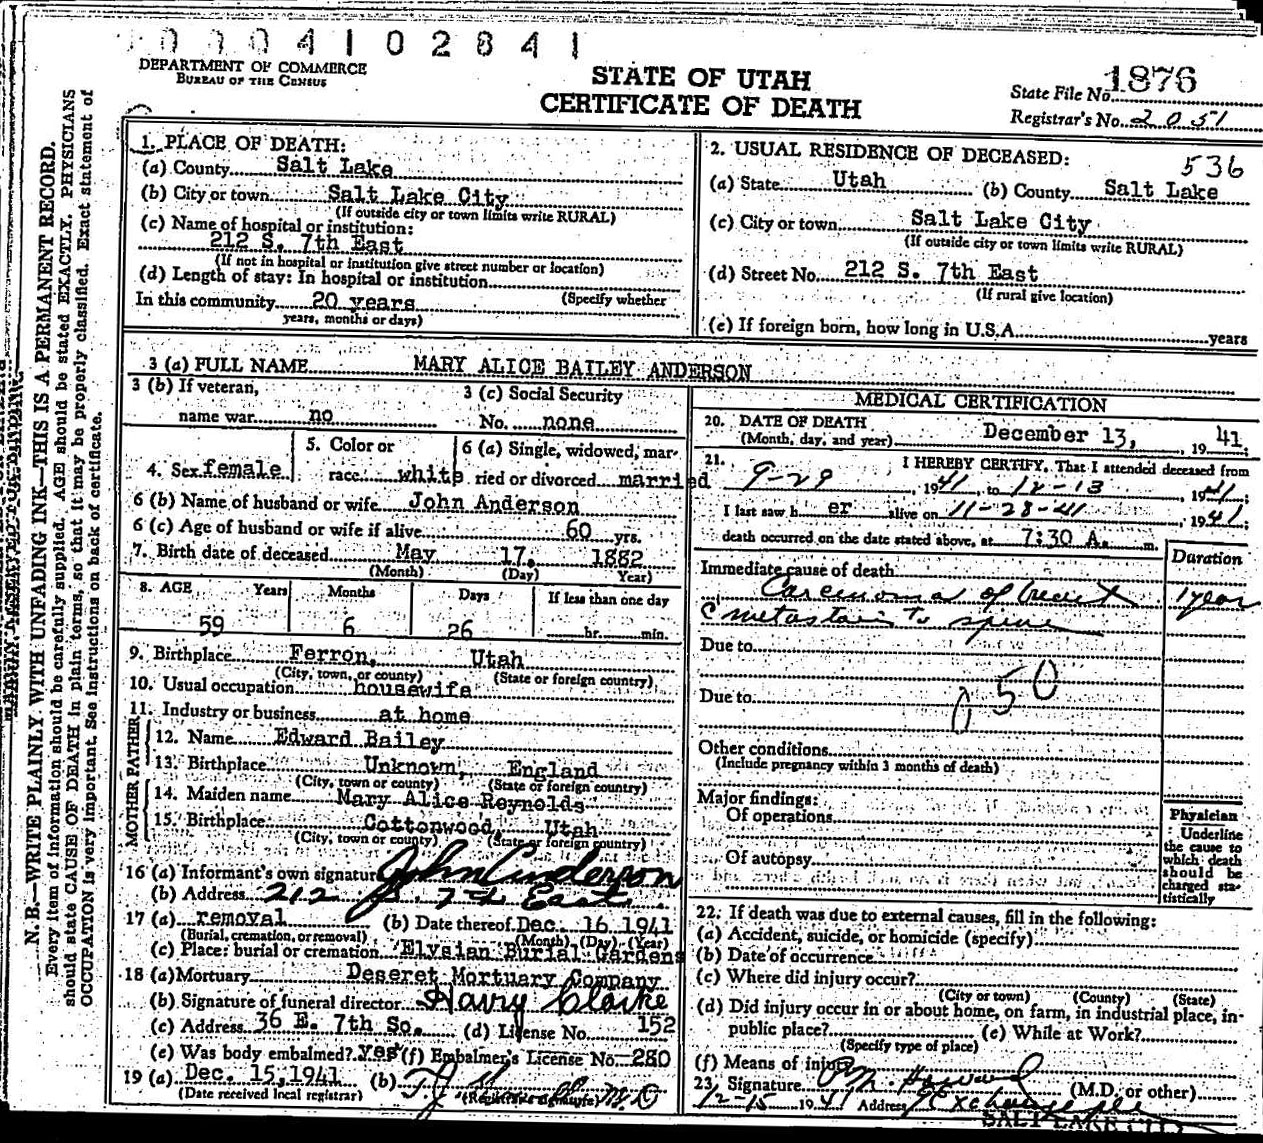 0 0 0 4 1 0 2 8 4 1
DEPARTMENT OF COMMERCE
BUREAU OF THE CENSUS
STATE OF UTAH
CERTIFICATE OF DEATH
State File No. 1876
Registrar's No. 2051
N. B.—WRITE PLAINLY WITH UNFADING INK—THIS IS A PERMANENT RECORD.
Every item of information should be carefully supplied. AGE should be stated EXACTLY. PHYSICIANS
should state CAUSE OF DEATH in plain terms, so that it may be properly classified. Exact statement of
OCCUPATION is very important. See instructions on back of certificate.
1. PLACE OF DEATH:
(a) County Salt Lake
(b) City or town Salt Lake City
(If outside city or town limits write RURAL)
(c) Name of hospital or institution:
212 S. 7th East
(If not in hospital or institution give street number or location)
(d) Length of stay: In hospital or institution
(Specify whether
In this community 20 years
years, months or days)
2. USUAL RESIDENCE OF DECEASED:
536
(a) State Utah (b) County Salt Lake
(c) City or town Salt Lake City
(If outside city or town limits write RURAL)
(d) Street No. 212 S. 7th East
(If rural give location)
(e) If foreign born, how long in U.S.A. years
3 (a) FULL NAME MARY ALICE BAILEY ANDERSON
3 (b) If veteran,
name war no
3 (c) Social Security
No. none
4. Sex female
5. Color or
race white
6 (a) Single, widowed, mar-
ried or divorced married
6 (b) Name of husband or wife John Anderson
6 (c) Age of husband or wife if alive 60 yrs.
7. Birth date of deceased May 17, 1882
(Month) (Day) (Year)
8. AGE Years Months Days If less than one day
59 6 26 hr. min.
9. Birthplace Ferron, Utah
(City, town, or county) (State or foreign country)
10. Usual occupation housewife
11. Industry or business at home
FATHER
12. Name Edward Bailey
13. Birthplace Unknown, England
(City, town or county) (State or foreign country)
MOTHER
14. Maiden name Mary Alice Reynolds
15. Birthplace Cottonwood, Utah
(City, town or county) (State or foreign country)
16 (a) Informant's own signature John Anderson
(b) Address 212 S. 7th East
17 (a) removal (b) Date thereof Dec. 16 1941
(Burial, cremation, or removal) (Month) (Day) (Year)
(c) Place: burial or cremation Elysian Burial Gardens
18 (a) Mortuary Deseret Mortuary Company
(b) Signature of funeral director Harry Clarke
(c) Address 36 E. 7th So. (d) License No. 152
(e) Was body embalmed? Yes (f) Embalmer's License No. 280
19 (a) Dec. 15, 1941 (b)
(Date received local registrar) (Registrar's signature) M.D
MEDICAL CERTIFICATION
20. DATE OF DEATH
(Month, day, and year) December 13, 1941
21. I HEREBY CERTIFY, That I attended deceased from
9-29, 1941, to 12-13, 1941;
I last saw h er alive on 11-28-41, 1941;
death occurred on the date stated above, at 7:30 A. m.
Duration
Immediate cause of death
Carcinoma of breast 1 year
c metastasis to spine
Due to
Due to
050
Other conditions
(Include pregnancy within 3 months of death)
Major findings:
Of operations
Of autopsy
Physician
Underline
the cause to
which death
should be
charged sta-
tistically
22. If death was due to external causes, fill in the following:
(a) Accident, suicide, or homicide (specify)
(b) Date of occurrence
(c) Where did injury occur?
(City or town) (County) (State)
(d) Did injury occur in or about home, on farm, in industrial place, in
public place? (e) While at Work?
(Specify type of place)
(f) Means of injury
23. Signature (M.D. or other)
12-15 1941 Address Exchange
SALT LAKE CITY